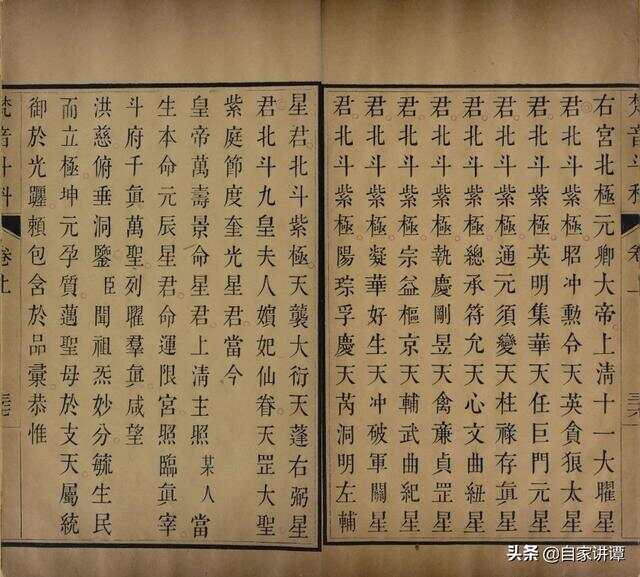 梵音斗科
卷上
右宮北極元卿大帝上清十一大曜星
君北斗紫極昭冲勲令天英貪狼太星
君北斗紫極英明集華天任巨門元星
君北斗紫極通元須變天柱祿存眞星
君北斗紫極總承符允天心文曲紐星
君北斗紫極執慶剛昱天禽廉貞罡星
君北斗紫極宗益樞京天輔武曲紀星
君北斗紫極凝華好生天冲破軍關星
君北斗紫極陽琮孚慶天芮洞明左輔
星君北斗紫極天龔大衍天蓬右弼星
君北斗九皇夫人嬪妃仙眷天罡大聖
紫庭節度奎光星君當今
皇帝萬壽景命星君上清主照某人當
生本命元辰星君命運限宮照臨眞宰
斗府千眞萬聖列曜羣眞咸望
洪慈俯垂洞鑒臣聞祖炁妙分毓生民
而立極坤元孕質邁聖母於支天屬統
御於光躔賴包含於品彙恭惟
梵音斗科
卷上
頭条 @自家讲谭